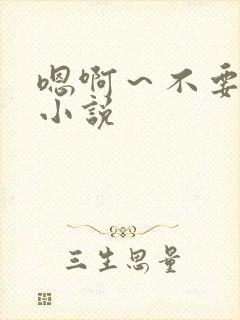 嗯啊～不要
小说
三生思量